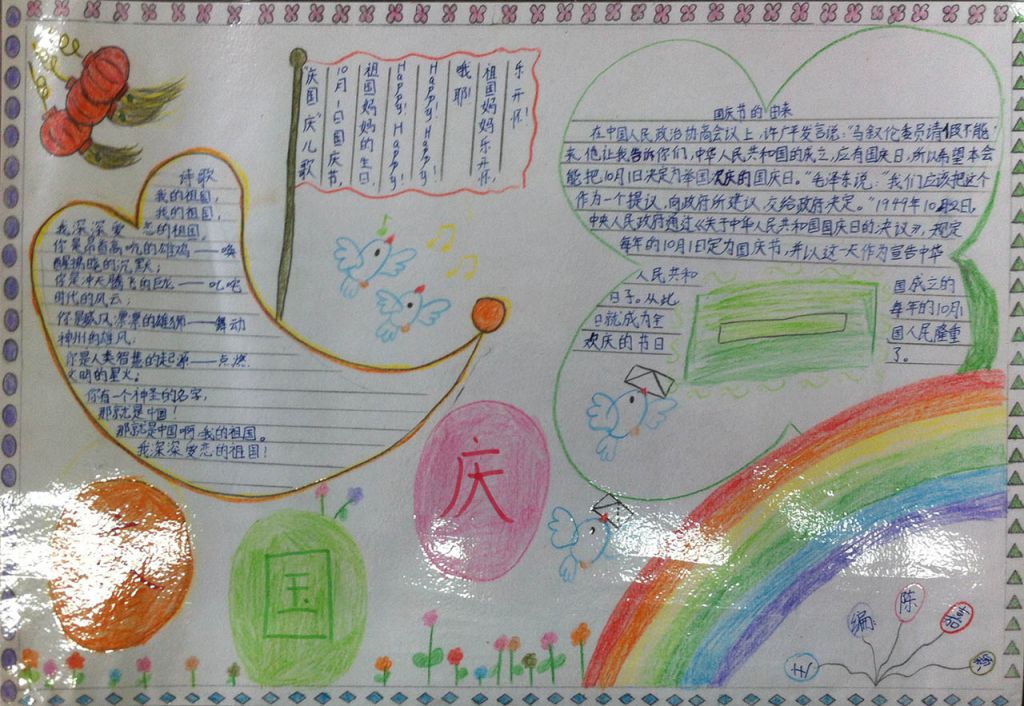 诗歌
我的祖国,
我的祖国,
我深深爱恋的祖国,
你是昂首高吭的雄鸡——唤
醒拂晓的沉默;
你是冲天腾飞的巨龙——叱咤
时代的风云;
你是威风凛凛的雄狮——舞动
神州的雄风;
你是人类智慧的起源——点燃
文明的星火;
你有一个神圣的名字,
那就是中国!
那就是中国啊我的祖国。
我深深爱恋的祖国!
“庆国庆”儿歌
10月1日国庆节,
祖国妈妈的生日.
Happy! Happy!
Happy! Happy!
哦耶!
祖国妈妈乐开怀,
乐开怀!
国庆节的由来
在中国人民政治协商会议上,许广平发言说:“马叙伦委员请假不能
来,他让我告诉你们,中华人民共和国的成立,应有国庆日,所以希望本会
能把10月1日决定为举国欢庆的国庆日。”毛泽东说:“我们应该把这个
作为一个提议,向政府所建议,友给政府决定。”1949年10月2日,
中央人民政府通过《关于中华人民共和国国庆日的决议》,规定
每年的10月1日定为国庆节,并以这一天作为宣告中华
人民共和
国成立的
日子。从此
每年的10月1
日就成为全
国人民隆重
欢庆的节日
了。
庆
国
主
编:
陈